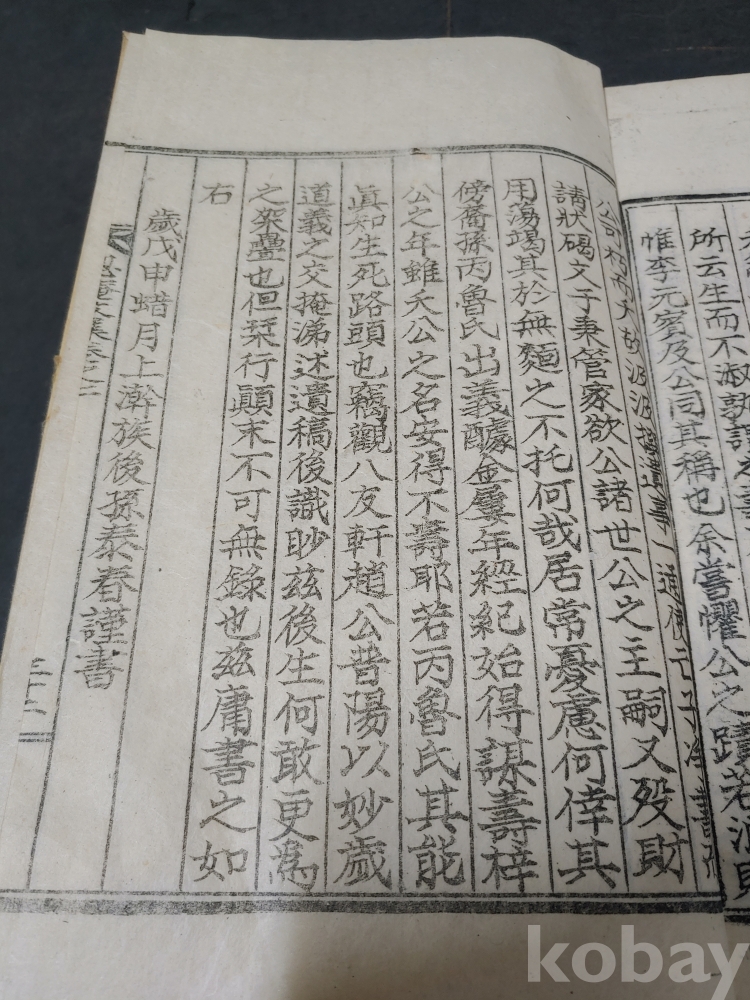 所云生而不淑孰謂之
惟李元賓及公同其稱也余嘗懼公之蹟若泯
一道使
請狀碣文子秉管家欲公諸世公之主嗣又歿財
用蕩竭其於無麵之不托何哉居常憂慮何倖其
傍裔孫丙魯氏出義醵金屢年經紀始得謀壽梓
公之年雖夭公之名安得不壽耶若丙魯氏其能
眞知生死路頭也竊觀八友軒趙公昔陽以妙歲
道義之交掩涕述遺稿後識眇玆後生何敢更爲
之架疊也但栞行顚末不可無錄也玆庸書之如
右
歲戊申蜡月上澣族後孫泰春謹書
kobay